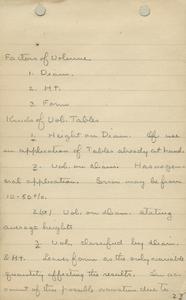 Factors of Volume
1. Diam.
2. Ht.
3. Form
Kinds of Vol. Tables
1. Height on Diam. Of use
an application of Tables already at hand.
2. Vol. on diam. Has no gen-
eral application. Error may be from
10-50%.
2(a) Vol. on diam. stating
average heights
3. Vol. classified by diam.
& Ht. Leaves form as the only variable
quantity affecting the results. In ac-
count of this possible variation due to